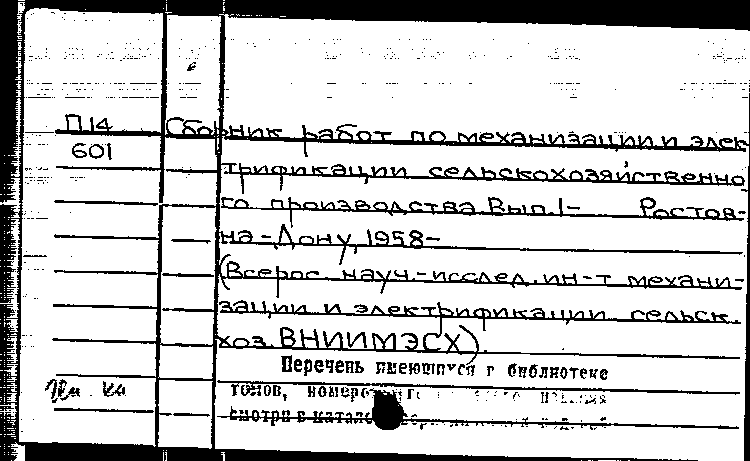 П14
601
Сборник работ по механизации и элек-
трификации сельскохозяйственно
го производства. Вып. 1- Ростов-
на-Дону, 1958-
(Всерос. науч.-исслед. ин-т механи-
зации и электрификации сельск.
хоз. ВНИИМЭСХ).
Перечень имеющихся в библиотеке
томов,
смотри в